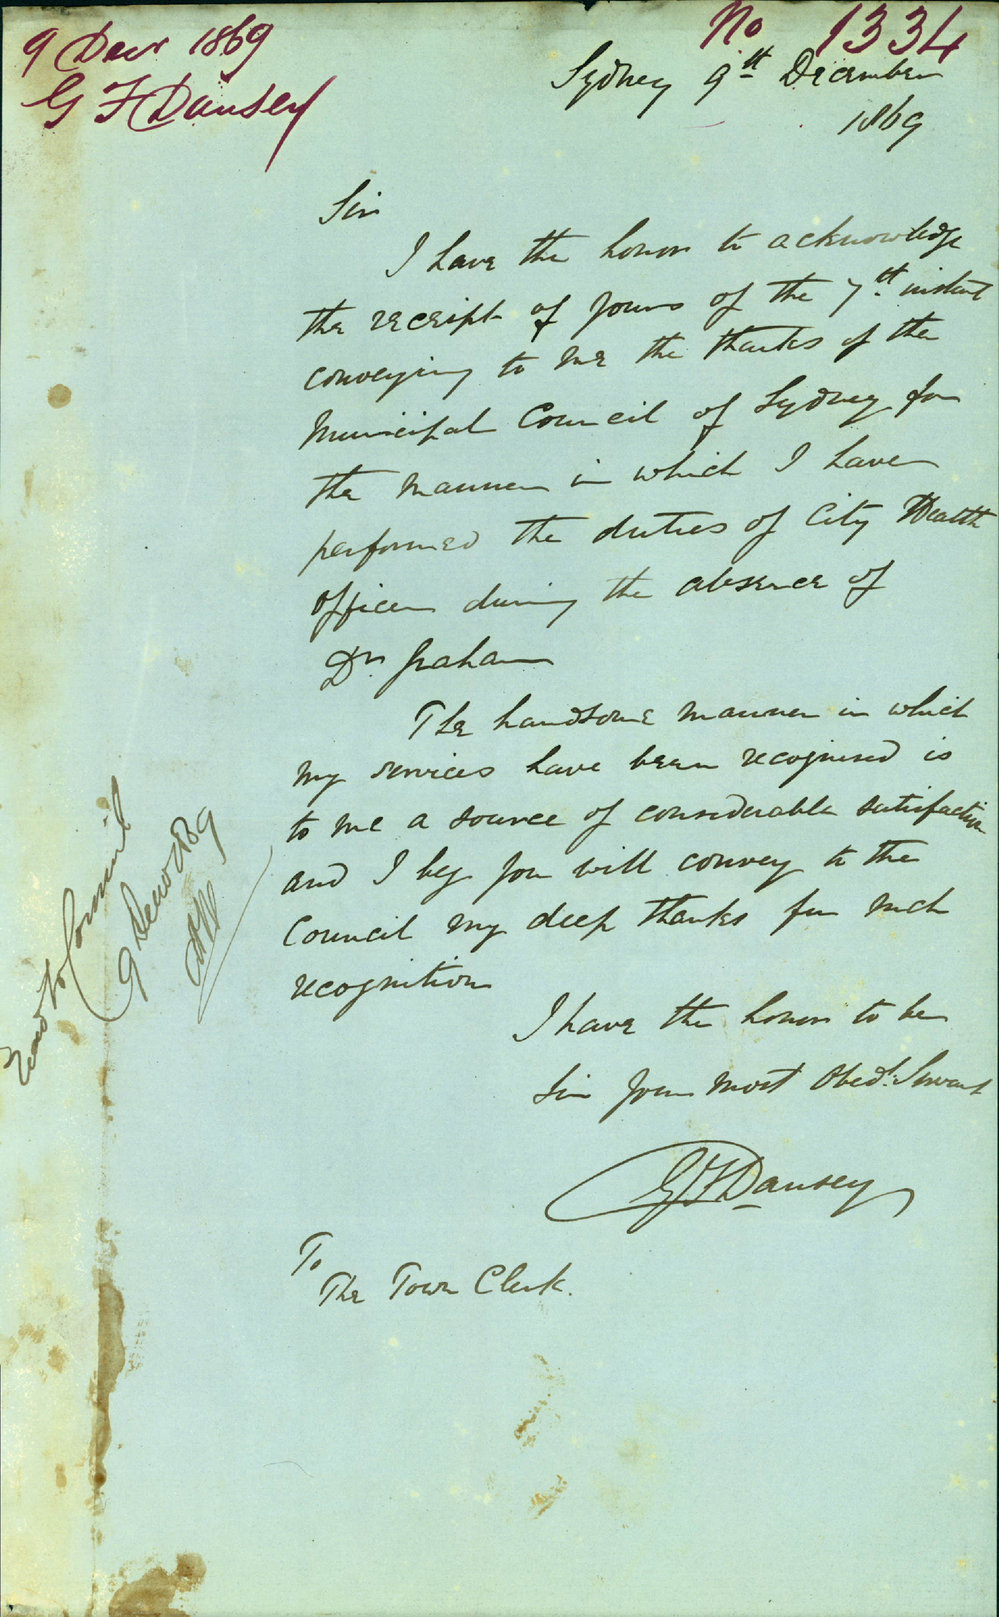 9 Decr 1869
G F Dansey
No 1334
Sydney 9th December
1869
Sir
I have the honor to acknowledge
the receipt of yours of the 7th instant
conveying to me the thanks of the
Municipal Council of Sydney for
the manner in which I have
performed the duties of City Health
officer during the absence of
Dr. Graham
The handsome manner in which
my services have been recognised is
to me a source of considerable satisfaction
and I beg you will convey to the
Council my deep thanks for such
recognition
I have the honor to be
Sir your most Obedt. Servant
G F Dansey
To
The Town Clerk.
to Council
9 Decr 1869